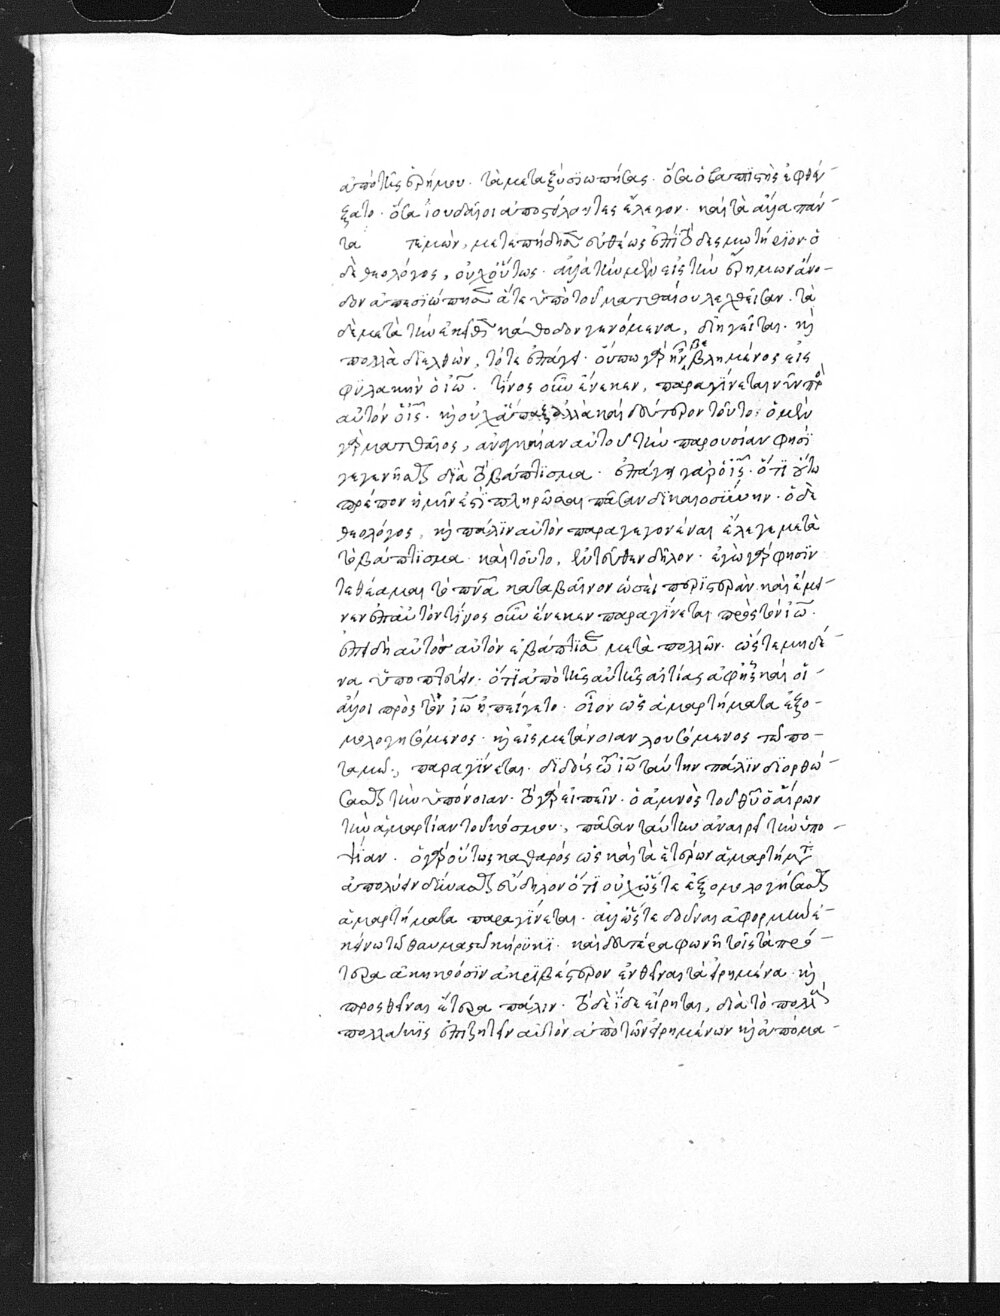 ἀπὸ τῆς ἐρήμου. τὰ μεταξὺ σιωπήσας. ὅσα ὁ βαπτιστὴς ἐφθέγ-
ξατο. ὅσα ἰουδαῖοι ἀποστόλοντες ἔλεγον. καὶ τὰ ἄλλα πάν-
τα τεμὼν, μετεπήδησεν εὐθέως ἐπὶ τὸ δεσμωτήριον. ὁ
δὲ θεολόγος, οὐχ οὕτως. ἀλλὰ τὴν μὲν εἰς τὴν ἔρημον ἄνο-
δον ἀπεσιώπησεν ἅτε ὑπὸ τοῦ ματθαίου λεχθεῖσαν. τὰ
δὲ μετὰ τὴν ἐκεῖθεν κάθοδον γενόμενα, διηγεῖται. καὶ
πολλὰ διελθὼν, τότε ἐπάγει. οὔπω γὰρ ἦν βεβλημένος εἰς
φυλακὴν ὁ ἰω. τίνος οὖν ἕνεκεν, παραγίνεται νῦν πρὸς
αὐτὸν ὁ ις. καὶ οὐχ ἅπαξ ἀλλὰ καὶ δεύτερον τοῦτο; ὁ μὲν
γὰρ ματθαῖος, ἀναγκαίαν αὐτοῦ τὴν παρουσίαν φησὶ
γεγενῆσθαι διὰ τὸ βάπτισμα. ἐπάγει γὰρ ὁ ις. ὅτι οὕτω
πρέπον ἡμῖν ἐστὶ πληρῶσαι πᾶσαν δικαιοσύνην. ὁ δὲ
θεολόγος, καὶ πάλιν αὐτὸν παραγεγονέναι ἔλεγε μετὰ
τὸ βάπτισμα. καὶ τοῦτο, ἐντεῦθεν δῆλον. ἐγὼ γὰρ φησὶν
τεθέαμαι τὸ πνα καταβαῖνον ὡσεὶ περιστερὰν. καὶ ἔμει-
νεν ἐπ' αὐτὸν τίνος οὖν ἕνεκεν παραγίνεται πρὸς τὸν ἰω.
ἐπειδὴ αὐτὸς αὐτὸν ἐβάπτισεν μετὰ πολλῶν. ὥστε μηδέ-
να ὑποπτεύειν. ὅτι ἀπὸ τῆς αὐτῆς αἰτίας ἀφῆς καὶ οἱ
ἄλλοι πρὸς τὸν ἰω ἠπείγετο. οἷον ὡς ἁμαρτήματα ἐξο-
μολογησόμενος. καὶ εἰς μετάνοιαν λουσόμενος τῷ πο-
ταμῷ., παραγίνεται. διδοὺς τῷ ἰω ταύτην πάλιν διορθώ-
σασθαι τὴν ὑπόνοιαν. τὸ γὰρ εἰπεῖν. ὁ ἀμνὸς τοῦ θυ ὁ αἴρων
τὴν ἁμαρτίαν τοῦ κόσμου, πᾶσαν ταύτην ἀναιρεῖ τὴν ὑπο-
ψίαν. ὁ γὰρ οὕτως καθαρὸς ὡς καὶ τὰ ἑτέρων ἁμαρτήματα
ἀπολύειν δύνασθαι εὔδηλον ὅτι οὐχ ὥστε ἐξομολογήσασθαι
ἁμαρτήματα παραγίνεται. ἀλλ' ὥστε δοῦναι ἀφορμὴν ἐ-
κείνω τῶ θαυμαστῶ κήρυκι. καὶ δευτέρα φωνῆ τοῖς τὰ πρό-
τερα ἀκηκοόσιν ἀκριβέστερον ἐνθεῖναι τὰ εἰρημένα. καὶ
προσθεῖναι ἕτερα πάλιν. τὸ δὲ ἴδε εἴρηται, διὰ τὸ πολλοὺς
πολλάκις ἐπιζητεῖν αὐτὸν ἀπὸ τῶν εἰρημένων καὶ ἀπὸ μα-